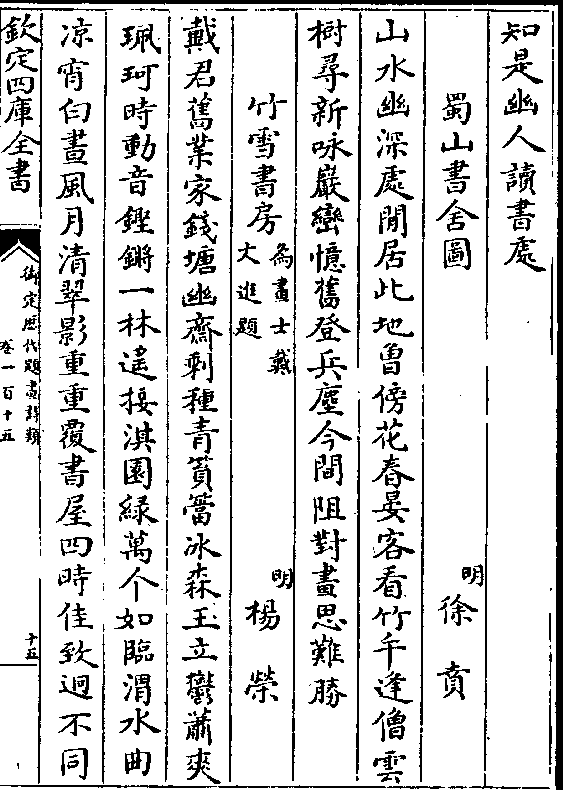 知是幽人讀書處
蜀山書舍圖
明徐賁
山水幽深處閒居此地曾傍花春晏客看竹午逢僧雲
樹尋新咏巖巒憶舊登兵塵今間阻對畫思難勝
竹雪書房為畫士戴文進題
明楊榮
戴君舊業家錢塘幽齋剩種青篔簹冰森玉立鬱蕭爽
珮珂時動音鏗鏘一林遙接淇園綠萬个如臨渭水曲
凉宵白晝風月清翠影重重覆書屋四時佳致迥不同
欽定四庫全書
御定歷代題畫詩類
卷一百十五
十五